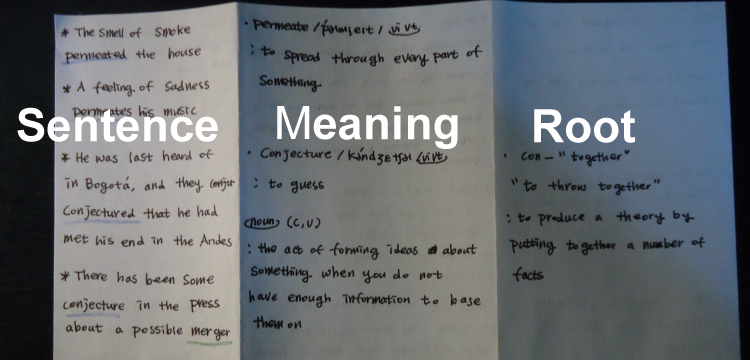 * The Smell of Smoke
permeated the house
* A feeling of Sadness
permeates his music
Sentence
* He was last heard of
in Bogotá, and they conjur
Conjectured that he had
met his end in the Andes
* There has been Some
conjecture in the press
about a possible merger
· permeate / / vi vt
: to spread through every part of
Something.
Meaning
· Conjecture / / vi vt
: to guess
noun (C, U)
: the act of forming ideas about
Something when you do not
have enough information to base
them on
Root
· con – "together"
"to throw together"
: to produce a theory by
putting together a number of
facts